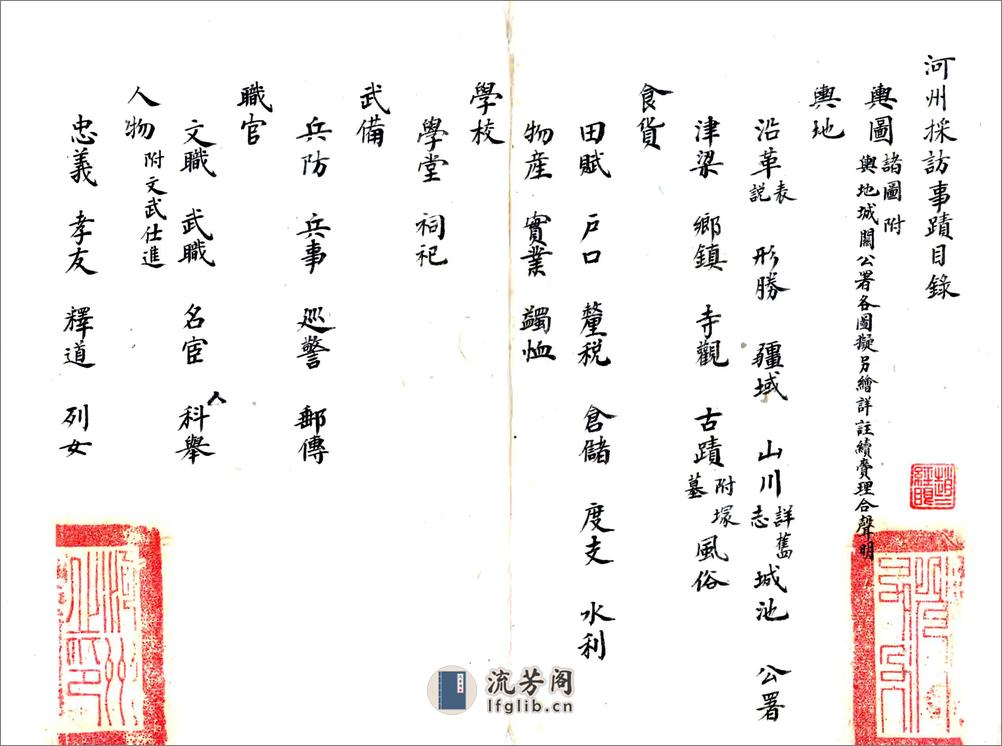 河州採訪事蹟目錄
輿圖 諸圖附
輿地城關公署各圖擬另繪詳註續賫理合聲明
輿地
沿革 表說 形勝 疆域 山川 詳舊志 城池 公署
津梁 鄉鎮 寺觀 古蹟 附塚墓 風俗
食貨
田賦 戶口 釐稅 倉儲 度支 水利
物產 實業 蠲恤
學校
學堂 祠祀
武備
兵防 兵事 巡警 郵傳
職官
文職 武職 名宦 科舉
人物 附文武仕進
忠義 孝友 釋道 列女
流芳阁
lfglib.cn